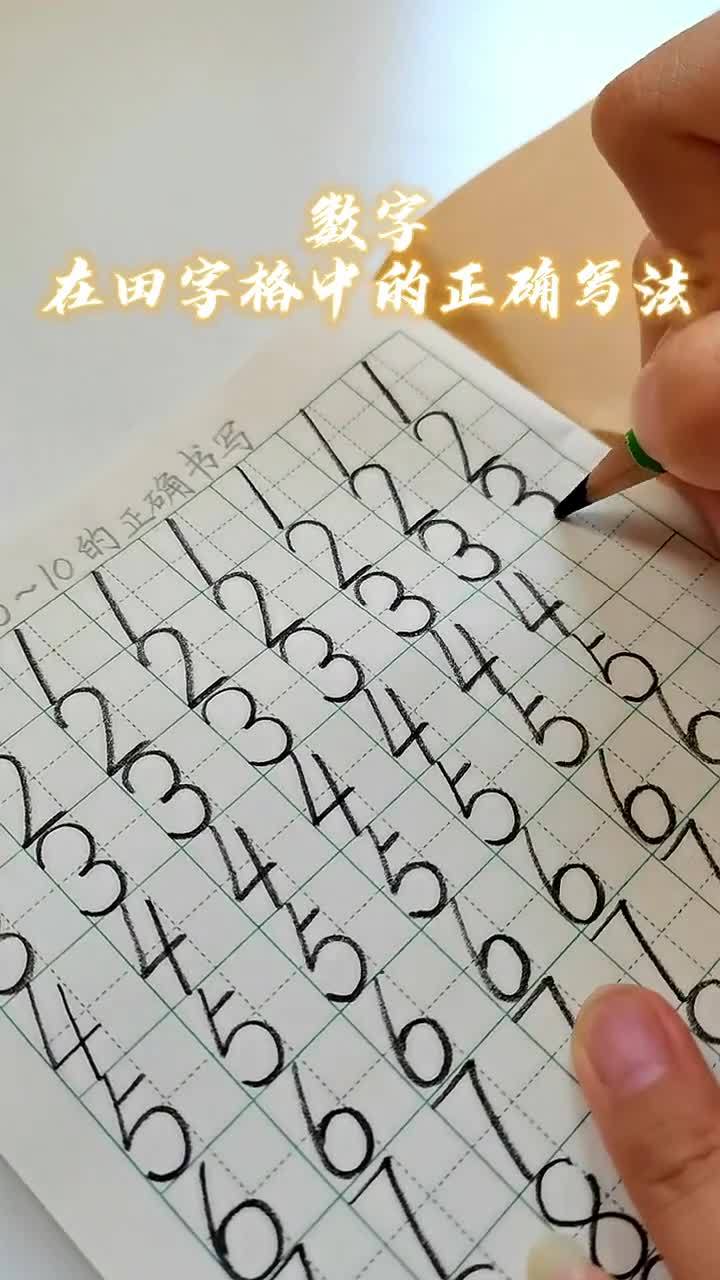 数字
在田字格中的正确写法
0~10的正确书写
1 1 1 1 1 1
2 2 2 2 2 2 2
3 3 3 3 3 3 3 3
4 4 4 4 4 4 4
5 5 5 5 5 5 5
6 6 6 6 6 6 6
7 7 7 7 7 7
8 8